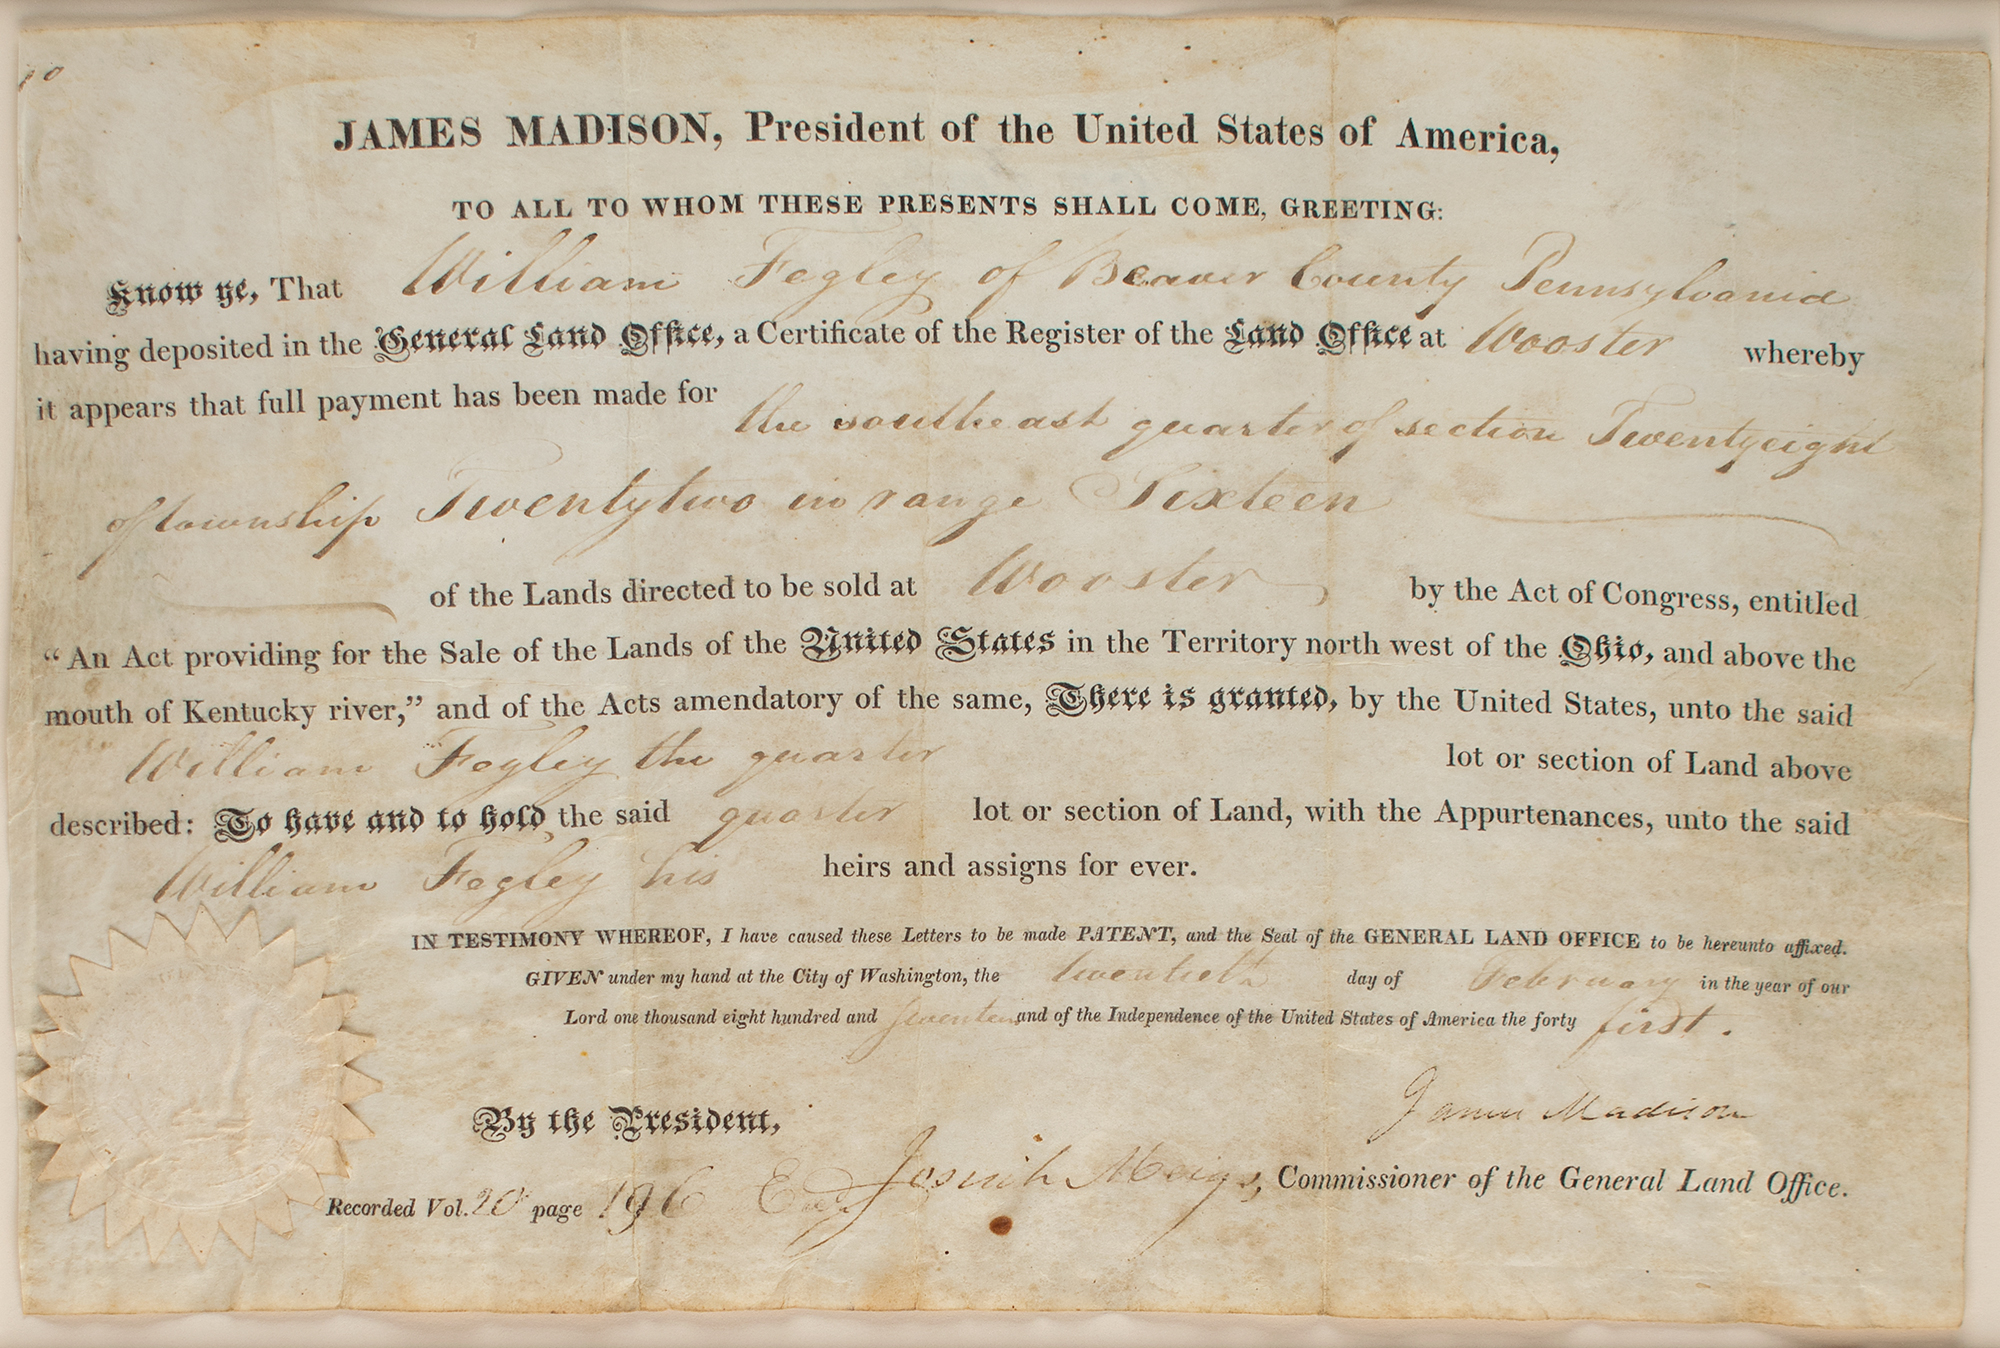 10
JAMES MADISON, President of the United States of America,
TO ALL TO WHOM THESE PRESENTS SHALL COME, GREETING:
Know ye, That William Fogley of Beaver County Pennsylvania
having deposited in the General Land Office, a Certificate of the Register of the Land Office at Wooster whereby
it appears that full payment has been made for the southeast quarter of section Twentyeight
of township Twentytwo in range Sixteen
of the Lands directed to be sold at Wooster, by the Act of Congress, entitled
“An Act providing for the Sale of the Lands of the United States in the Territory north west of the Ohio, and above the
mouth of Kentucky river,” and of the Acts amendatory of the same, There is granted, by the United States, unto the said
William Fogley the quarter lot or section of Land above
described: To have and to hold the said quarter lot or section of Land, with the Appurtenances, unto the said
William Fogley his heirs and assigns for ever.
IN TESTIMONY WHEREOF, I have caused these Letters to be made PATENT, and the Seal of the GENERAL LAND OFFICE to be hereunto affixed.
GIVEN under my hand at the City of Washington, the twentieth day of February in the year of our
Lord one thousand eight hundred and seventeen and of the Independence of the United States of America the forty first.
James Madison
By the President,
Josiah Meigs, Commissioner of the General Land Office.
Recorded Vol. 20 page 196